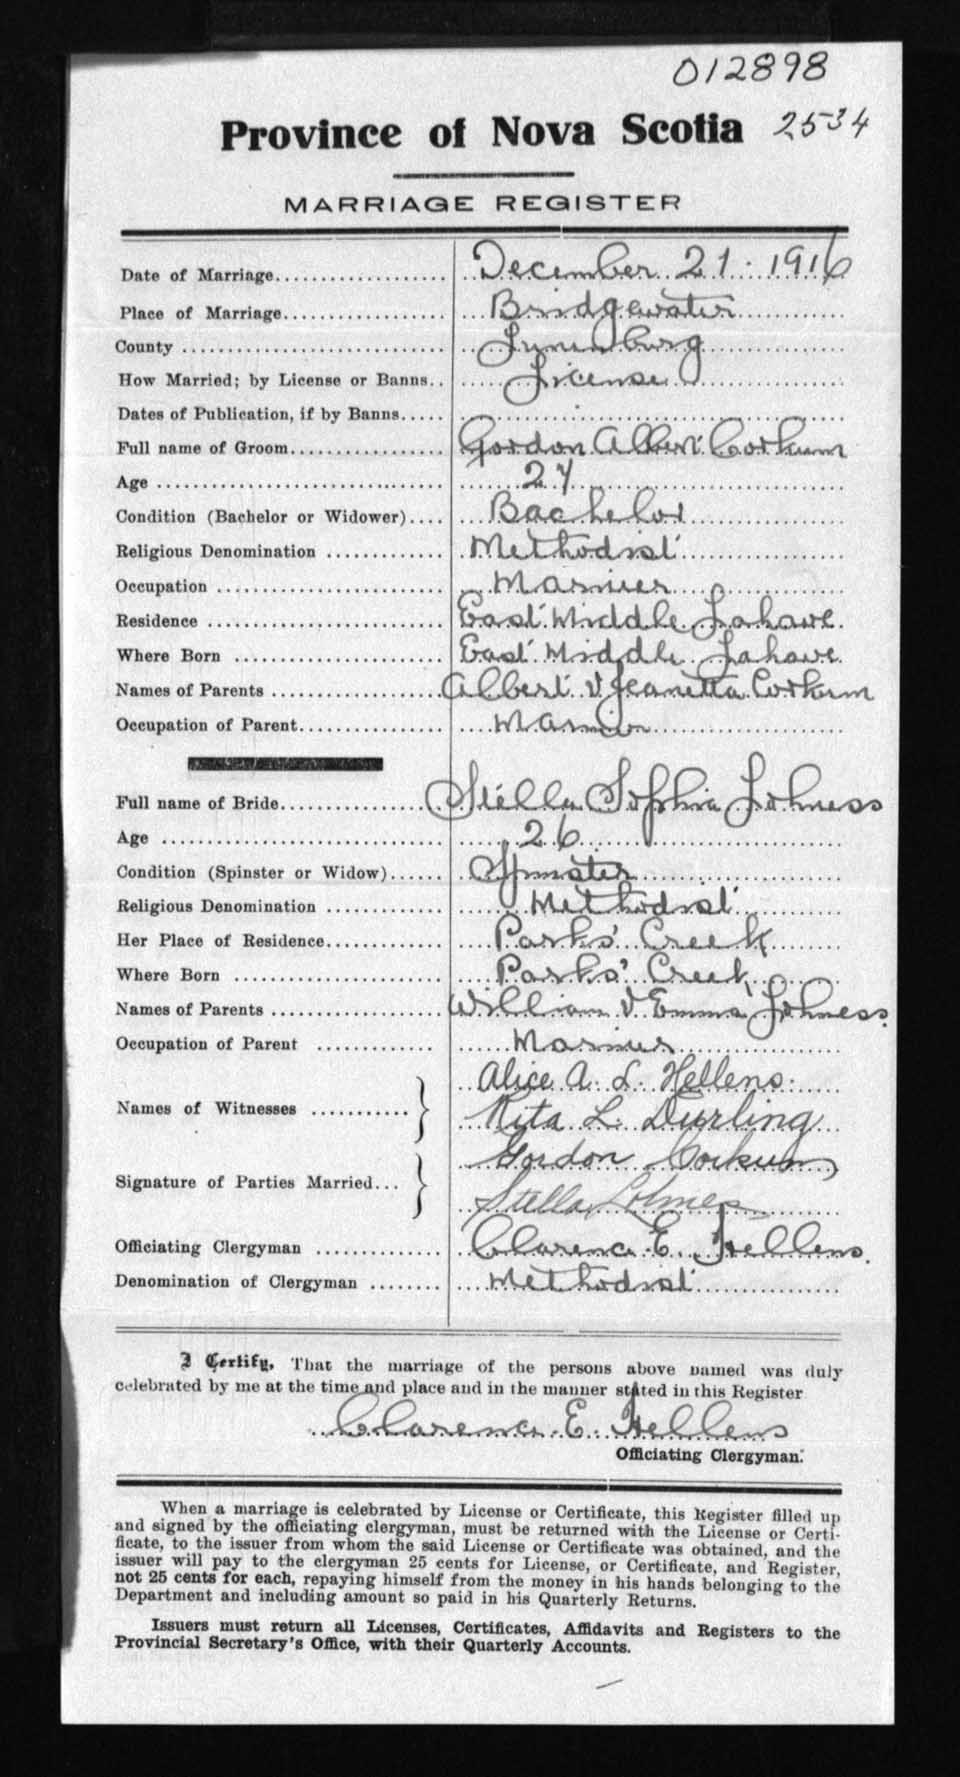 012898
Province of Nova Scotia 2534
MARRIAGE REGISTER
Date of Marriage December 21. 1916
Place of Marriage Bridgewater
County Lunenburg
How Married; by License or Banns License
Dates of Publication, if by Banns
Full name of Groom Gordon Albert Corkum
Age 27
Condition (Bachelor or Widower) Bachelor
Religious Denomination Methodist
Occupation Mariner
Residence East Middle Lahave.
Where Born East Middle Lahave.
Names of Parents Albert & Jeanetta Corkum
Occupation of Parent Mariner
Full name of Bride Stella Sophia Lohness
Age 26
Condition (Spinster or Widow) Spinster
Religious Denomination Methodist
Her Place of Residence Parks' Creek
Where Born Parks' Creek
Names of Parents William & Emma Lohness.
Occupation of Parent Mariner
Names of Witnesses } Alice A. L. Hellens.
Rita L. Durling
Signature of Parties Married } Gordon Corkum
Stella Lohnes
Officiating Clergyman Clarence E. Hellens.
Denomination of Clergyman Methodist
I Certify, That the marriage of the persons above named was duly
celebrated by me at the time and place and in the manner stated in this Register
Clarence E. Hellens
Officiating Clergyman.
When a marriage is celebrated by License or Certificate, this Register filled up
and signed by the officiating clergyman, must be returned with the License or Certi-
ficate, to the issuer from whom the said License or Certificate was obtained, and the
issuer will pay to the clergyman 25 cents for License, or Certificate, and Register,
not 25 cents for each, repaying himself from the money in his hands belonging to the
Department and including amount so paid in his Quarterly Returns.
Issuers must return all Licenses, Certificates, Affidavits and Registers to the
Provincial Secretary's Office, with their Quarterly Accounts.